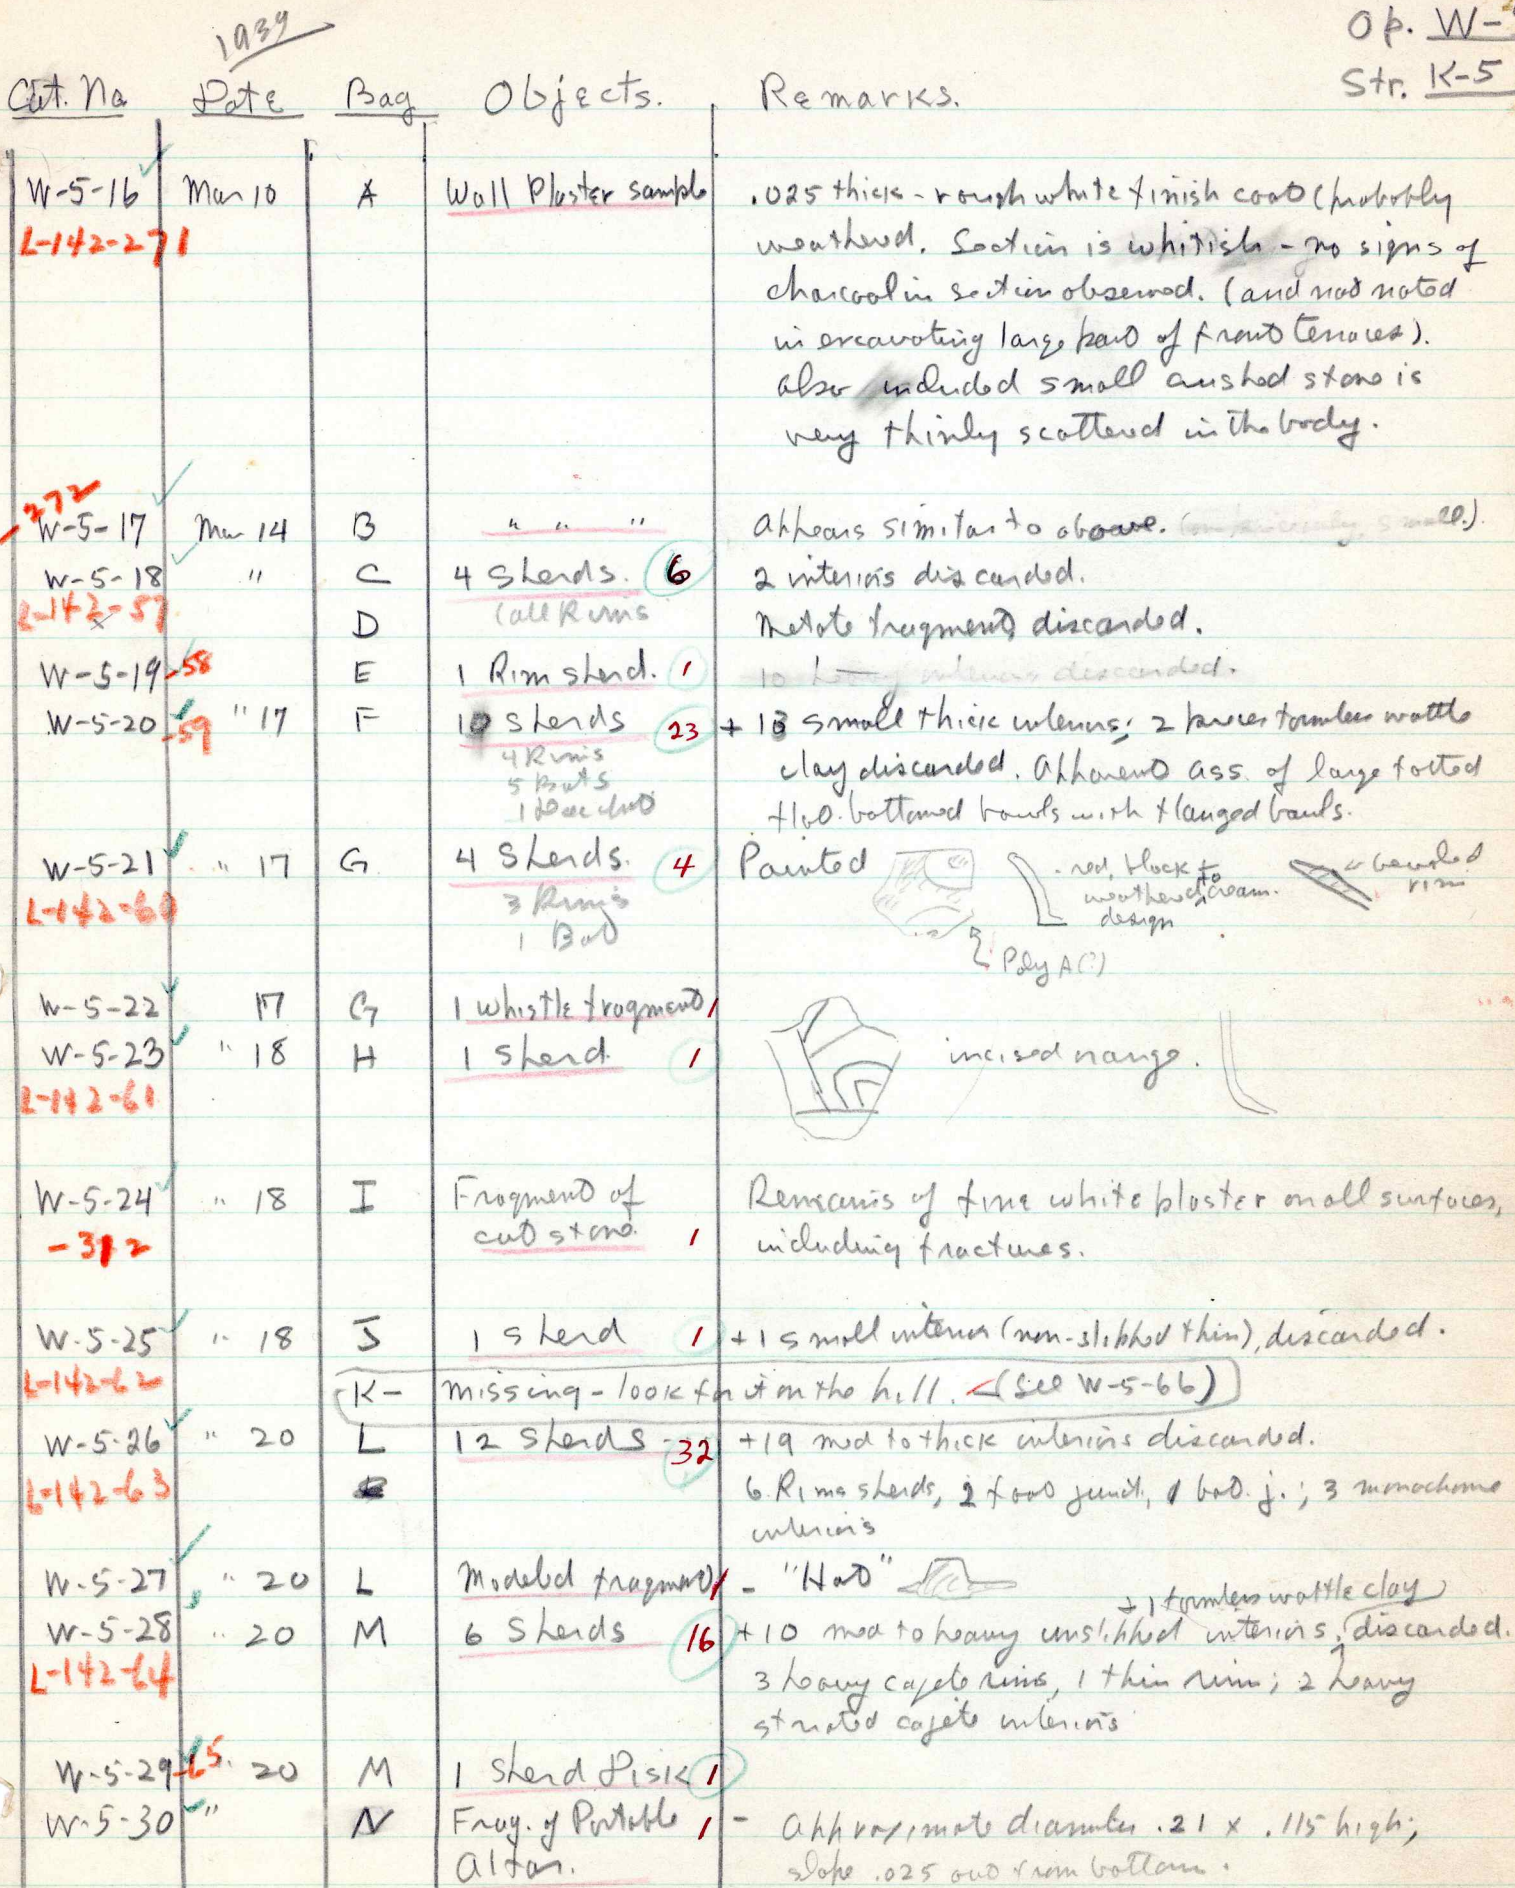 1939
Op. W-
Str. K-5
Cat. No Date Bag Objects. Remarks.
W-5-16 Mar 10 A Wall Plaster sample .025 thick - rough white finish coat (probably
L-142-271 weathered. Section is whitish - no signs of
charcoal in section observed. (and not noted
in excavating large part of front terraces).
Also included small crushed stone is
very thinly scattered in the body.
-272
W-5-17 Mar 14 B " " " Appears similar to above.
W-5-18 " C 4 Sherds. 6 2 interiors discarded.
L-142-57 (all Rims
D Metate fragments discarded.
W-5-19 -58 E 1 Rim sherd. 1 10 heavy interiors discarded.
W-5-20 -59 " 17 F 10 Sherds 23 + 13 small thick interiors; 2 pieces formless wattle
4 Rims clay discarded. Apparent ass. of large footed
5 Bots flat-bottomed bowls with flanged bowls.
1
W-5-21 " 17 G 4 Sherds. 4 Painted - red, black to weathered cream. design beveled rim
L-142-60 3 Rims
1 Bot Poly A (?)
W-5-22 17 G 1 whistle fragment 1
W-5-23 " 18 H 1 Sherd 1 incised orange.
L-142-61
W-5-24 " 18 I Fragment of Remains of fine white plaster on all surfaces,
-312 cut stone. 1 including fractures.
W-5-25 " 18 J 1 sherd 1 + 1 small interior (non-slipped thin), discarded.
L-142-62 K- missing - look for it on the hill. (See W-5-66)
W-5-26 " 20 L 12 Sherds 32 +19 med to thick interiors discarded.
L-142-63 6 Rims sherds, 2 foot junct, 1 bot. j.; 3 monochrome
interiors
W-5-27 " 20 L Modeled fragment 1 - "Hat"
+ 1 formless wattle clay
W-5-28 " 20 M 6 Sherds 16 +10 med to heavy unslipped interiors, discarded.
L-142-64 3 heavy cajete rims, 1 thin rim; 2 heavy
striated cajete interiors
W-5-29 -65 20 M 1 Sherd Disk 1
W-5-30 " N Frag. of Portable 1 - Approximate diameter .21 x .115 high;
Altar. slope .025 out from bottom.